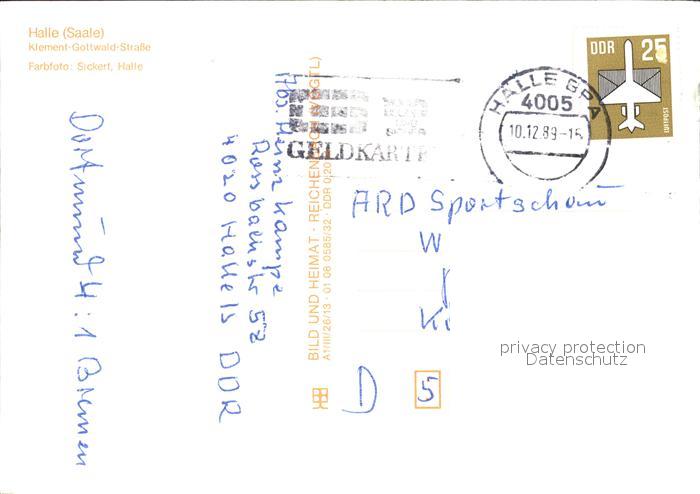 Halle (Saale)
Klement-Gottwald-Straße
Farbfoto: Sickert, Halle
Dortmund 4:1 Bremen
Heinz Kampe
52
4020 Halle/S DDR
BILD UND HEIMAT · REICHENBACH (VOGTL)
A1/III/26/13 · 01 06 0585/32 · DDR 0,20
GELDKARTE
HALLE GPA
4005
10.12.89-15
DDR 25
LUFTPOST
ARD Sportschau
W
K
D 5
privacy protection
Datenschutz